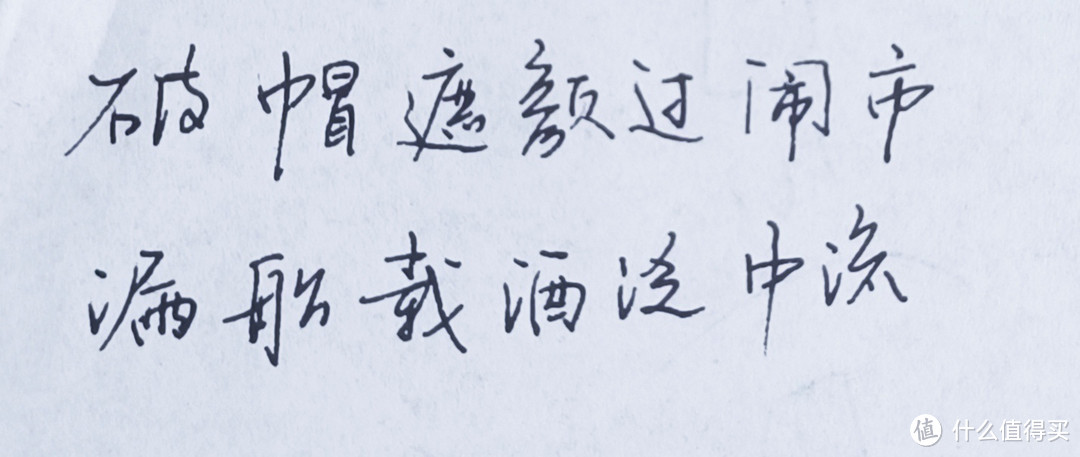 破帽遮额过闹市
漏船载酒泛中流
值 什么值得买